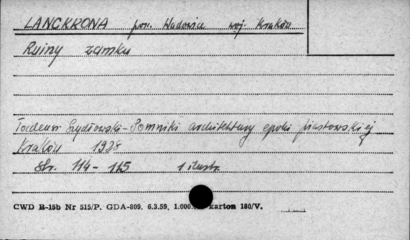 LANCKRONA pow. Wadowice woj. Kraków
Ruiny zamku
Tadeusz Szydłowski - Pomniki architektury epoki piastowskiej
Kraków 1928
Str. 114 - 115 1 ilustr.
CWD B-15b Nr 515/P. GDA-809. 6.3.59, 1.000. karton 180/V.